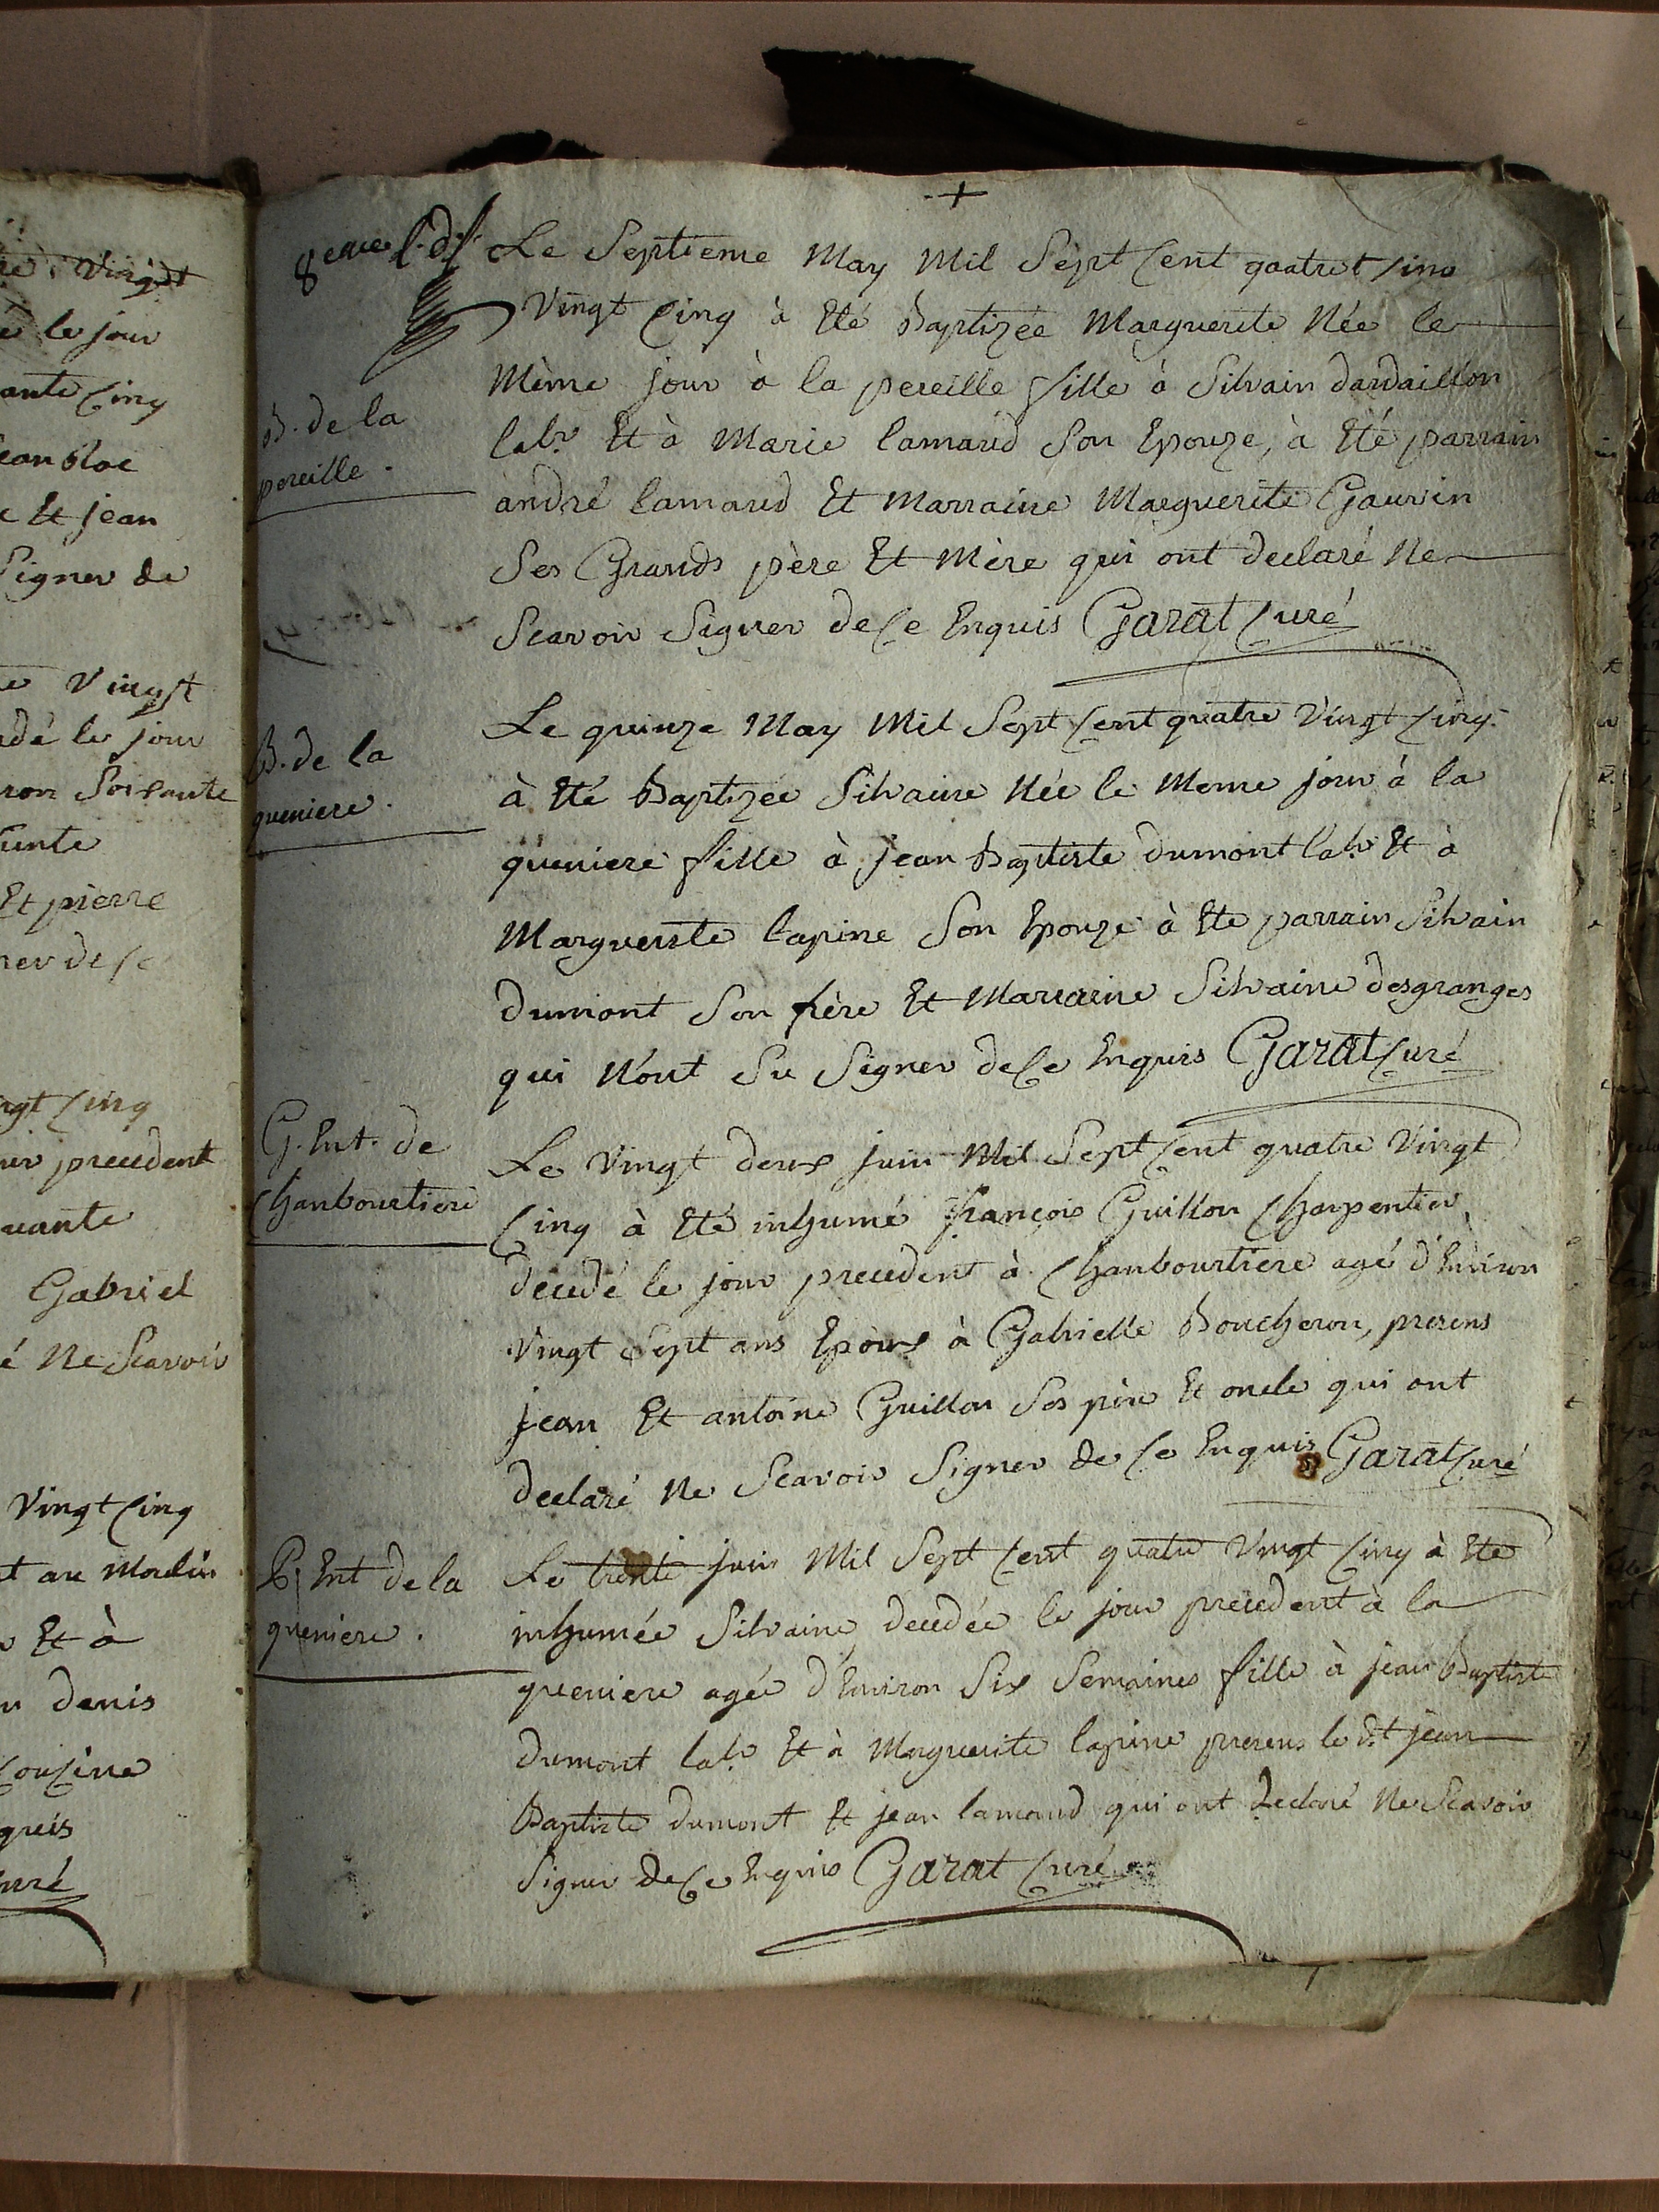 re Vingt
é le jour
ante Cinq
jean Blac
c Et jean
Signer de
e Vingt
adé le jour
ron Soixante
Et pierre
ner de Ce
ngt Cinq
ur precedent
uante
Gabriel
é Ne Scavoir
Vingt Cinq
t au Moulin
r Et à
n denis
Cousine
quis
curé
+
8eme
Le Septieme May Mil Sept Cent quatre
Vingt Cinq à Eté Baptizée Marguerite Née le
Même jour à la pereille fille à Silvain dardaillon
B. de la
pereille.
labr. Et à Marie lamaud Son Epouze, à Eté parrain
andré lamaud Et Marraine Marguerite Gauvin
Ses Grands père Et Mère qui ont declaré Ne
Scavoir Signer de Ce Enquis Garat Curé
B. de la
queniere.
Le quinze May Mil Sept Cent quatre Vingt Cinq.
à Eté Baptizée Silvaine Née le Meme jour à la
queniere fille à jean Baptiste dumont labr Et à
Marguerite lapine Son Epouze à Ete parrain Silvain
dumont Son frère Et Marraine Silvaine desgranges
qui N'ont Su Signer de Ce Enquis Garat Curé
G. Ent. de
Chanbourtiere
Le Vingt deux juin Mil Sept Cent quatre Vingt
Cinq à Eté inhumé françois Guillon Charpentier
decedé le jour precedent à Chanbourtiere agé d'Environ
Vingt Sept ans Epoux à Gabrielle Boucheron, presens
jean Et antoine Guillon Ses père Et oncle qui ont
declaré Ne Scavoir Signer de Ce Enquis Garat Curé
P. Ent de la
queniere.
Le trente juin Mil Sept Cent quatre Vingt Cinq à Eté
inhumée Silvaine decedée le jour precedent à la
queniere agée d'Environ Six Semaines fille à jean Baptiste
dumont labr Et à Marguerite lapine presens le dt jean
Baptiste dumont Et jean lamaud qui ont declaré Ne Scavoir
Signer de Ce Enquis Garat Curé